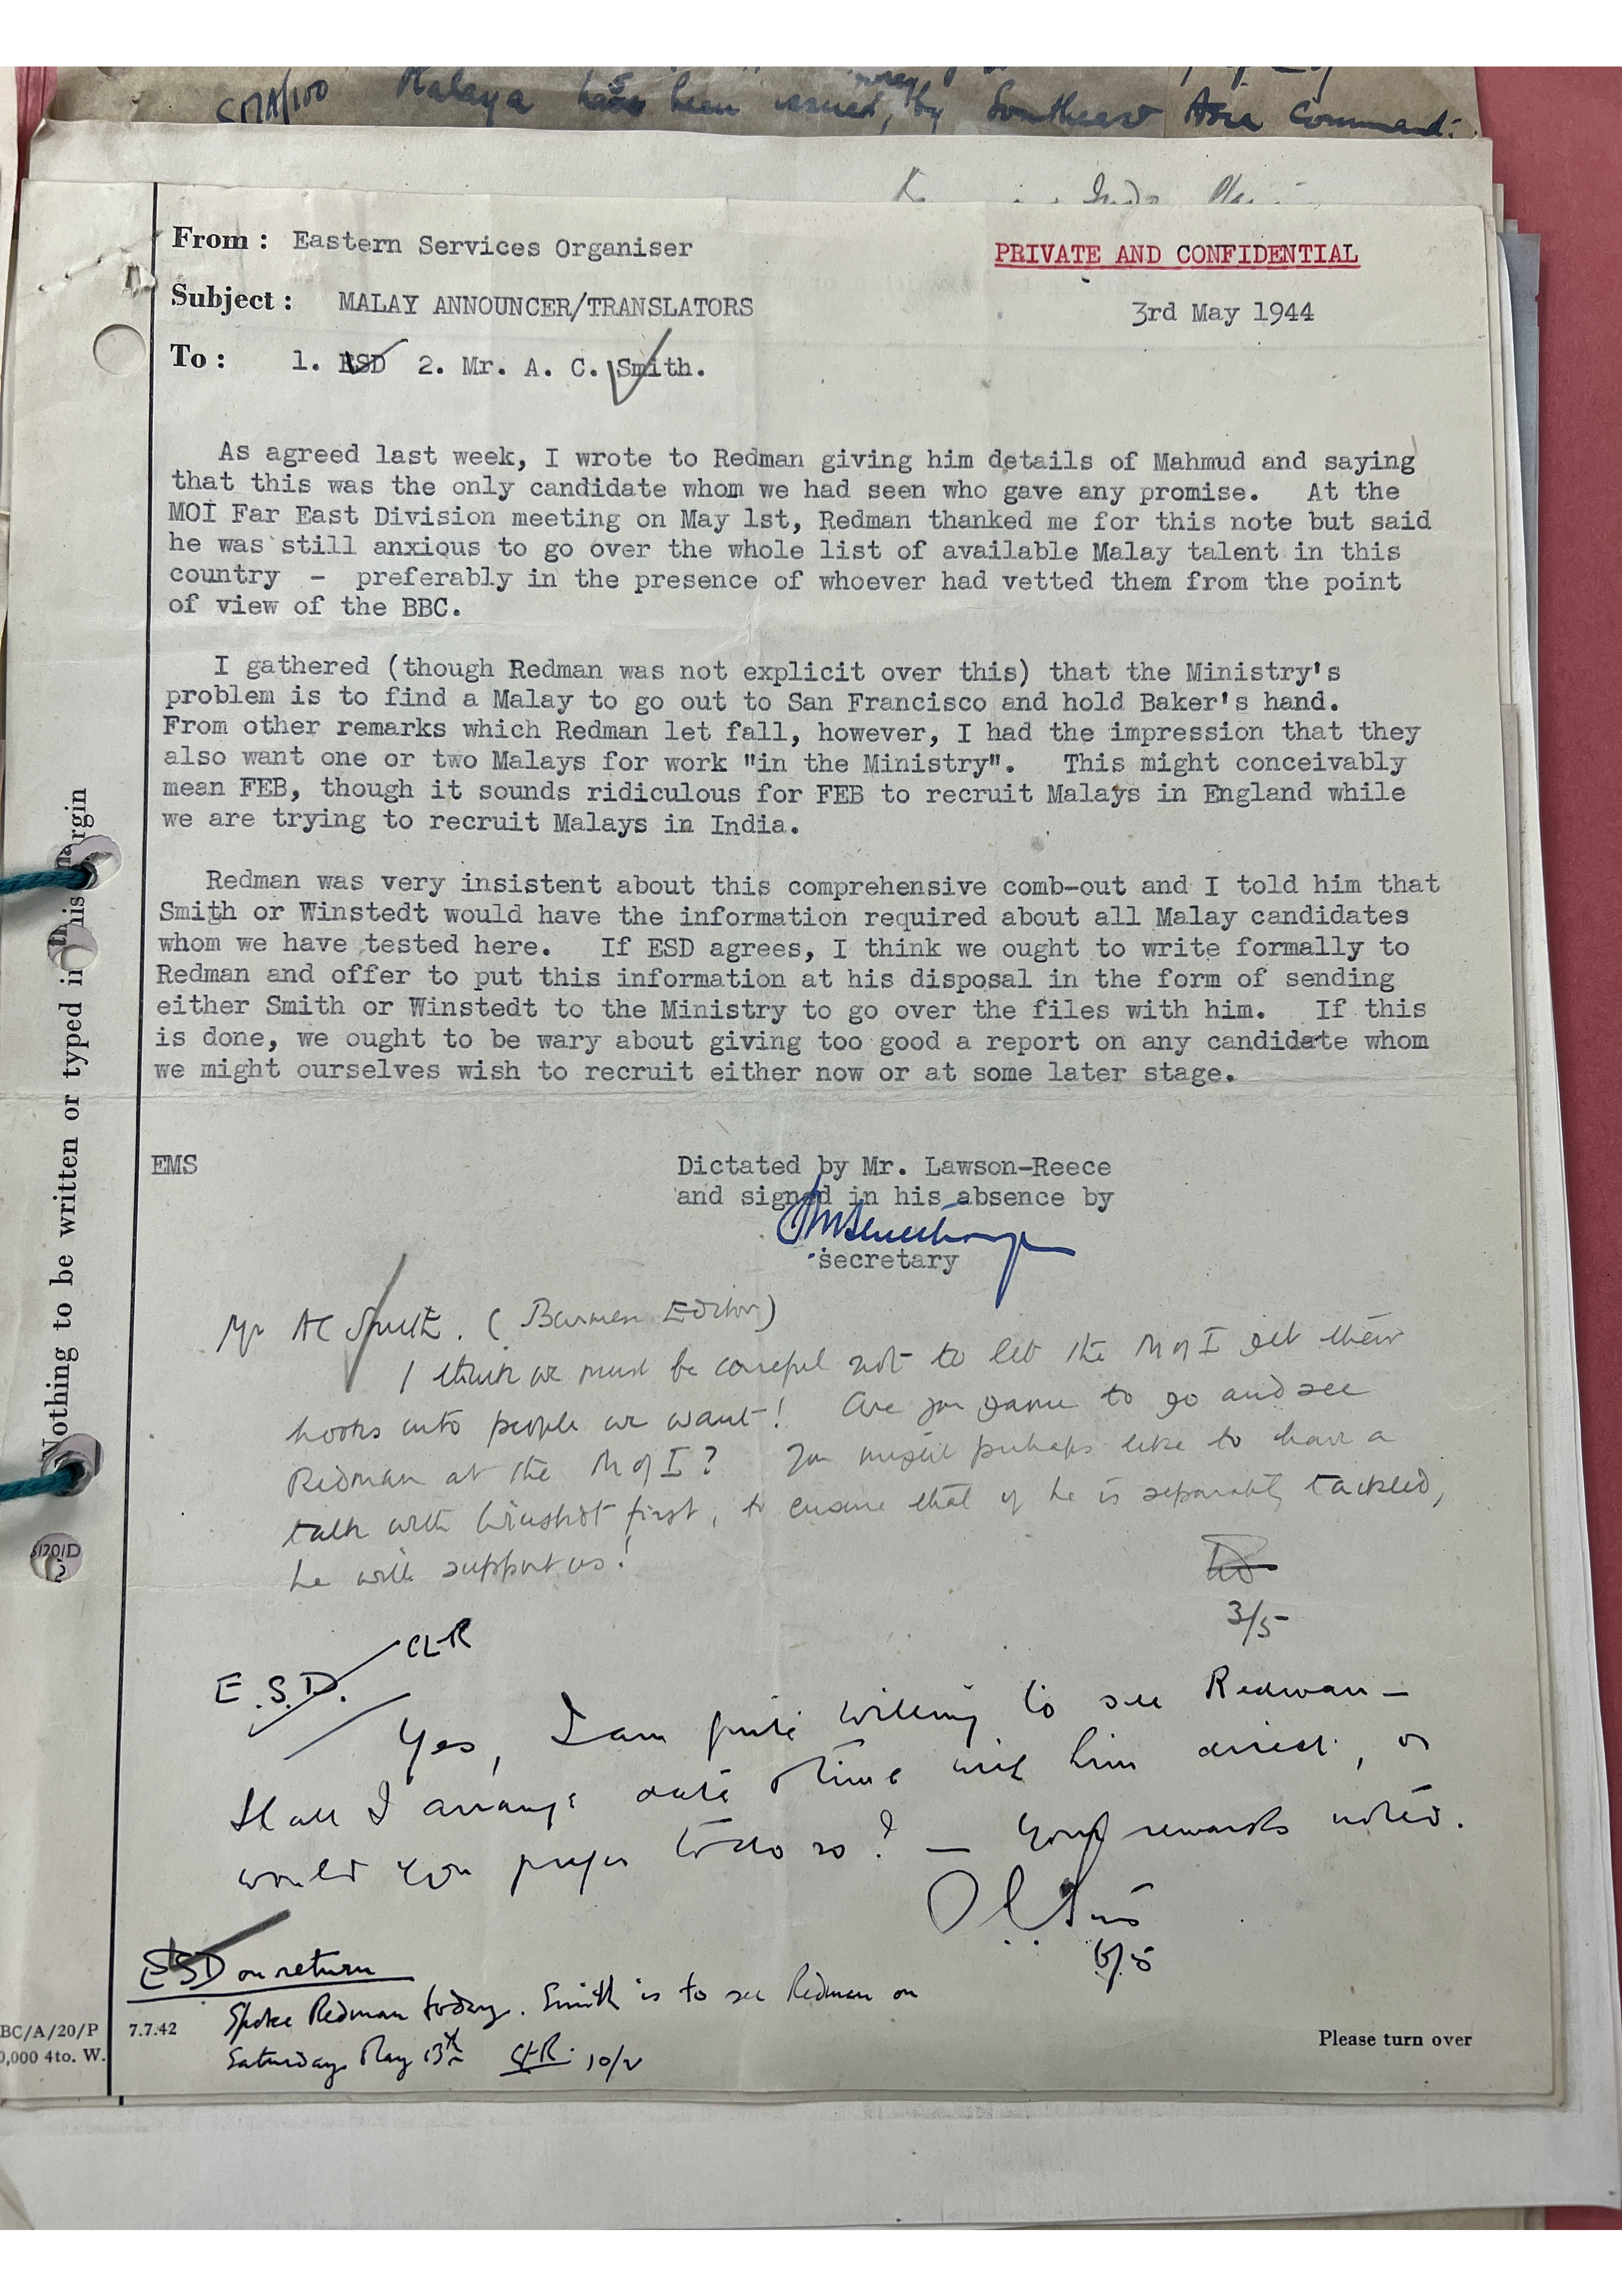 Malaya have been issued, by Southeast Asia Command.
From: Eastern Services Organiser
PRIVATE AND CONFIDENTIAL
Subject: MALAY ANNOUNCER/TRANSLATORS
3rd May 1944
To: 1. ESD 2. Mr. A. C. Smith.
As agreed last week, I wrote to Redman giving him details of Mahmud and saying
that this was the only candidate whom we had seen who gave any promise. At the
MOI Far East Division meeting on May 1st, Redman thanked me for this note but said
he was still anxious to go over the whole list of available Malay talent in this
country - preferably in the presence of whoever had vetted them from the point
of view of the BBC.
I gathered (though Redman was not explicit over this) that the Ministry's
problem is to find a Malay to go out to San Francisco and hold Baker's hand.
From other remarks which Redman let fall, however, I had the impression that they
also want one or two Malays for work "in the Ministry". This might conceivably
mean FEB, though it sounds ridiculous for FEB to recruit Malays in England while
we are trying to recruit Malays in India.
Redman was very insistent about this comprehensive comb-out and I told him that
Smith or Winstedt would have the information required about all Malay candidates
whom we have tested here. If ESD agrees, I think we ought to write formally to
Redman and offer to put this information at his disposal in the form of sending
either Smith or Winstedt to the Ministry to go over the files with him. If this
is done, we ought to be wary about giving too good a report on any candidate whom
we might ourselves wish to recruit either now or at some later stage.
EMS
Dictated by Mr. Lawson-Reece
and signed in his absence by
secretary
Mr AC Smith. (Burmese Editor)
I think we must be careful not to let the M of I get their
hooks into people we want! Are you game to go and see
Redman at the M of I? You might perhaps like to have a
talk with Winstedt first, to ensure that if he is separately tackled,
he will support us!
3/5
CLR
E.S.D.
Yes, I am quite willing to see Redman -
Shall I arrange date & time with him direct, or
would you prefer to do so? - Your remarks noted.
6/5
ESD on return
Spoke Redman today. Smith is to see Redman on
Saturday May 13th CLR. 10/5
Nothing to be written or typed in this margin
BC/A/20/P
0,000 4to. W.
7.7.42
Please turn over